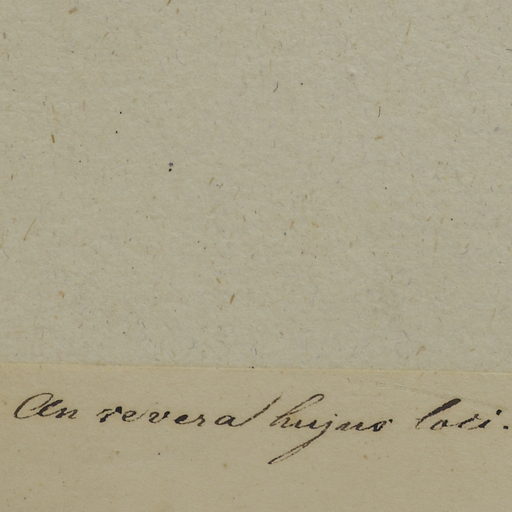 An revera hujus loci.